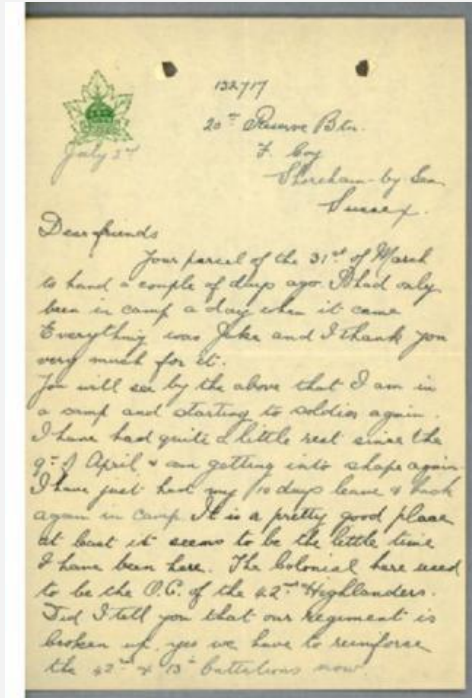 132717
20th Reserve Btn.
July 27
F. Coy
Shoreham-by-Sea
Sussex.
Dear friends
Your parcel of the 31st of March
to hand a couple of days ago. I had only
been in camp a day when it came
Everything was Jake and I thank you
very much for it.
You will see by the above that I am in
a camp and starting to soldier again.
I have had quite a little rest since the
9th of April & am getting into shape again
I have just had my 10 days leave & back
again in camp It is a pretty good place
at least it seems to be the little time
I have been here. The Colonial here used
to be the O.C. of the 42nd Highlanders.
Did I tell you that our regiment is
broken up, yes we have to reinforce
the 42nd & 13th battalions now